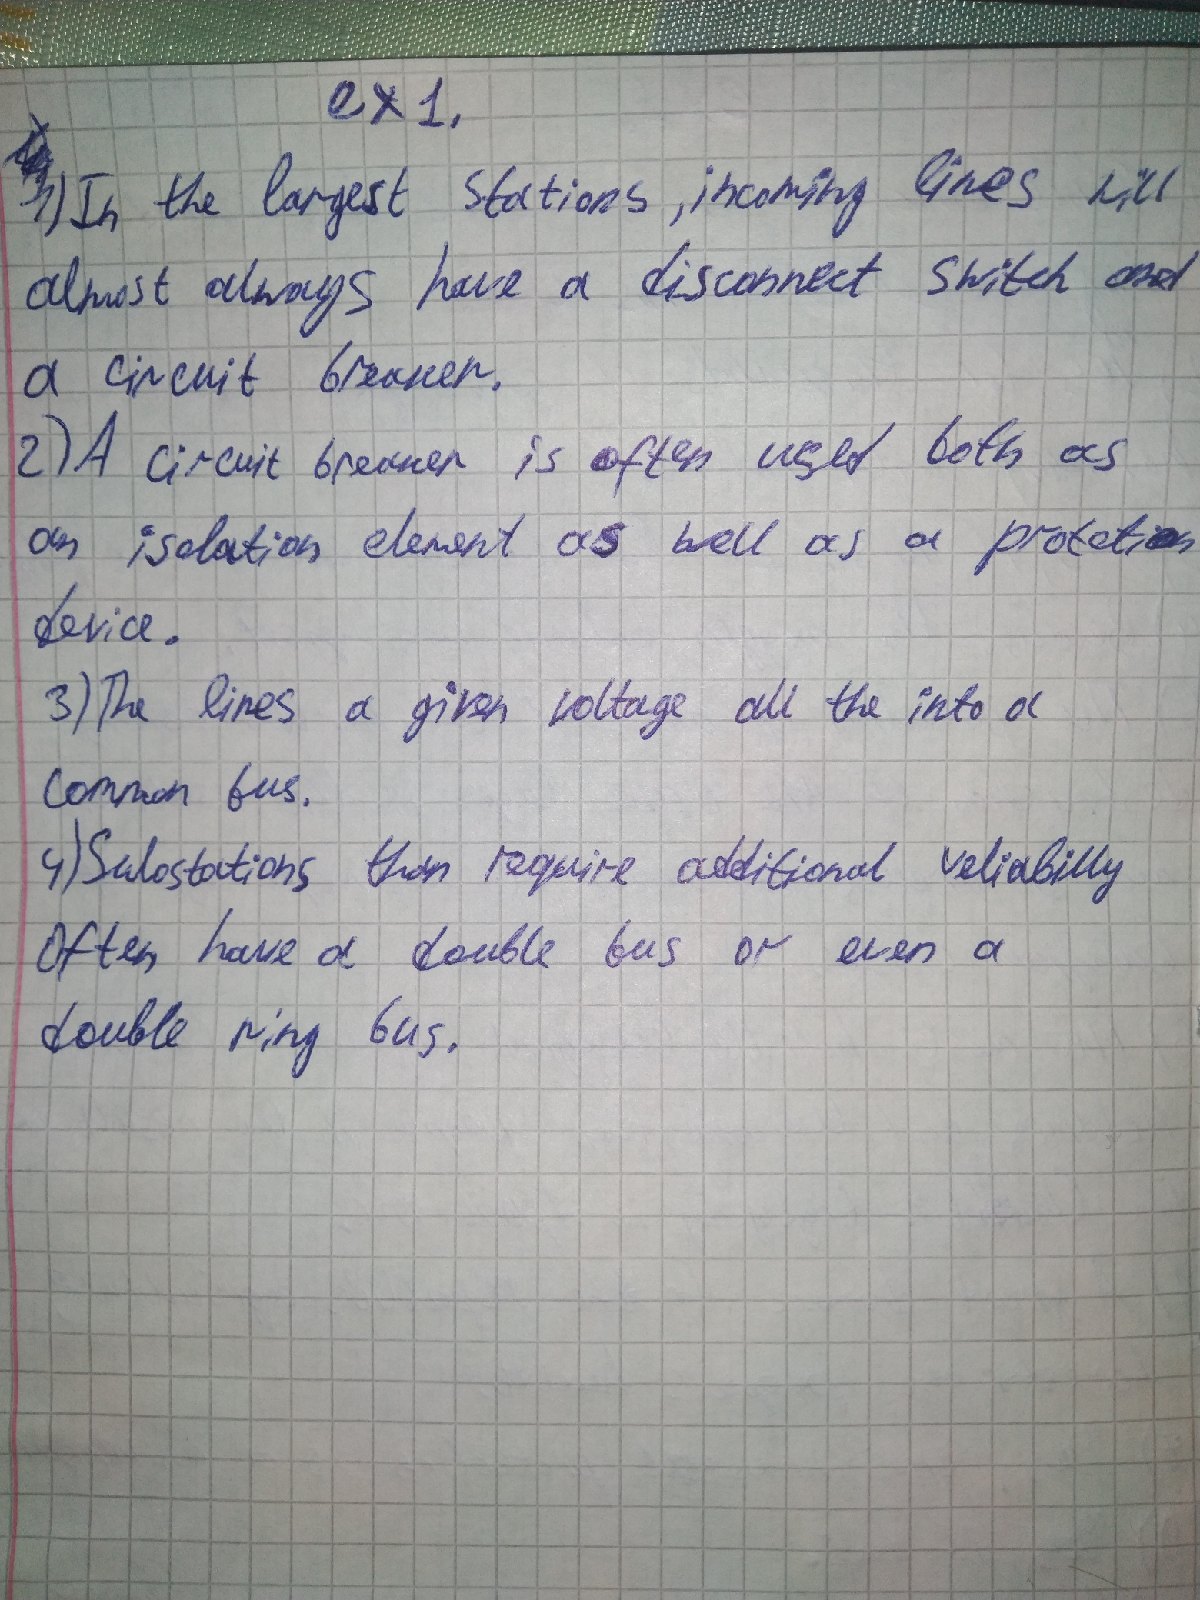 ex 1.
1) In the largest stations, incoming lines will
almost always have a disconnect switch and
a circuit breaker.
2) A circuit breaker is often used both as
an isolation element as well as a protection
device.
3) The lines a given voltage all the into a
common bus.
4) Substations than require additional reliability
Often have a double bus or even a
double ring bus.